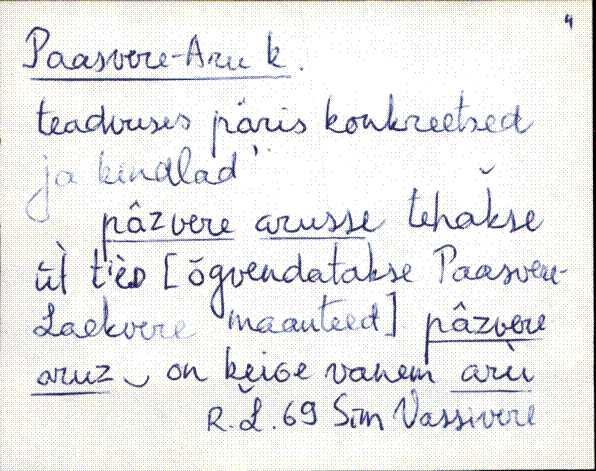 4
Paasvere-Aru k.
teadvuses päris konkreetsed
ja kindlad
pâzvere arusse tehăkse
t'èɒ [õgvendatakse Paasvere-
Laekvere maanteed] pâzvere
aruz on keige vanem arù
R.L. 69 Sim Vassivere